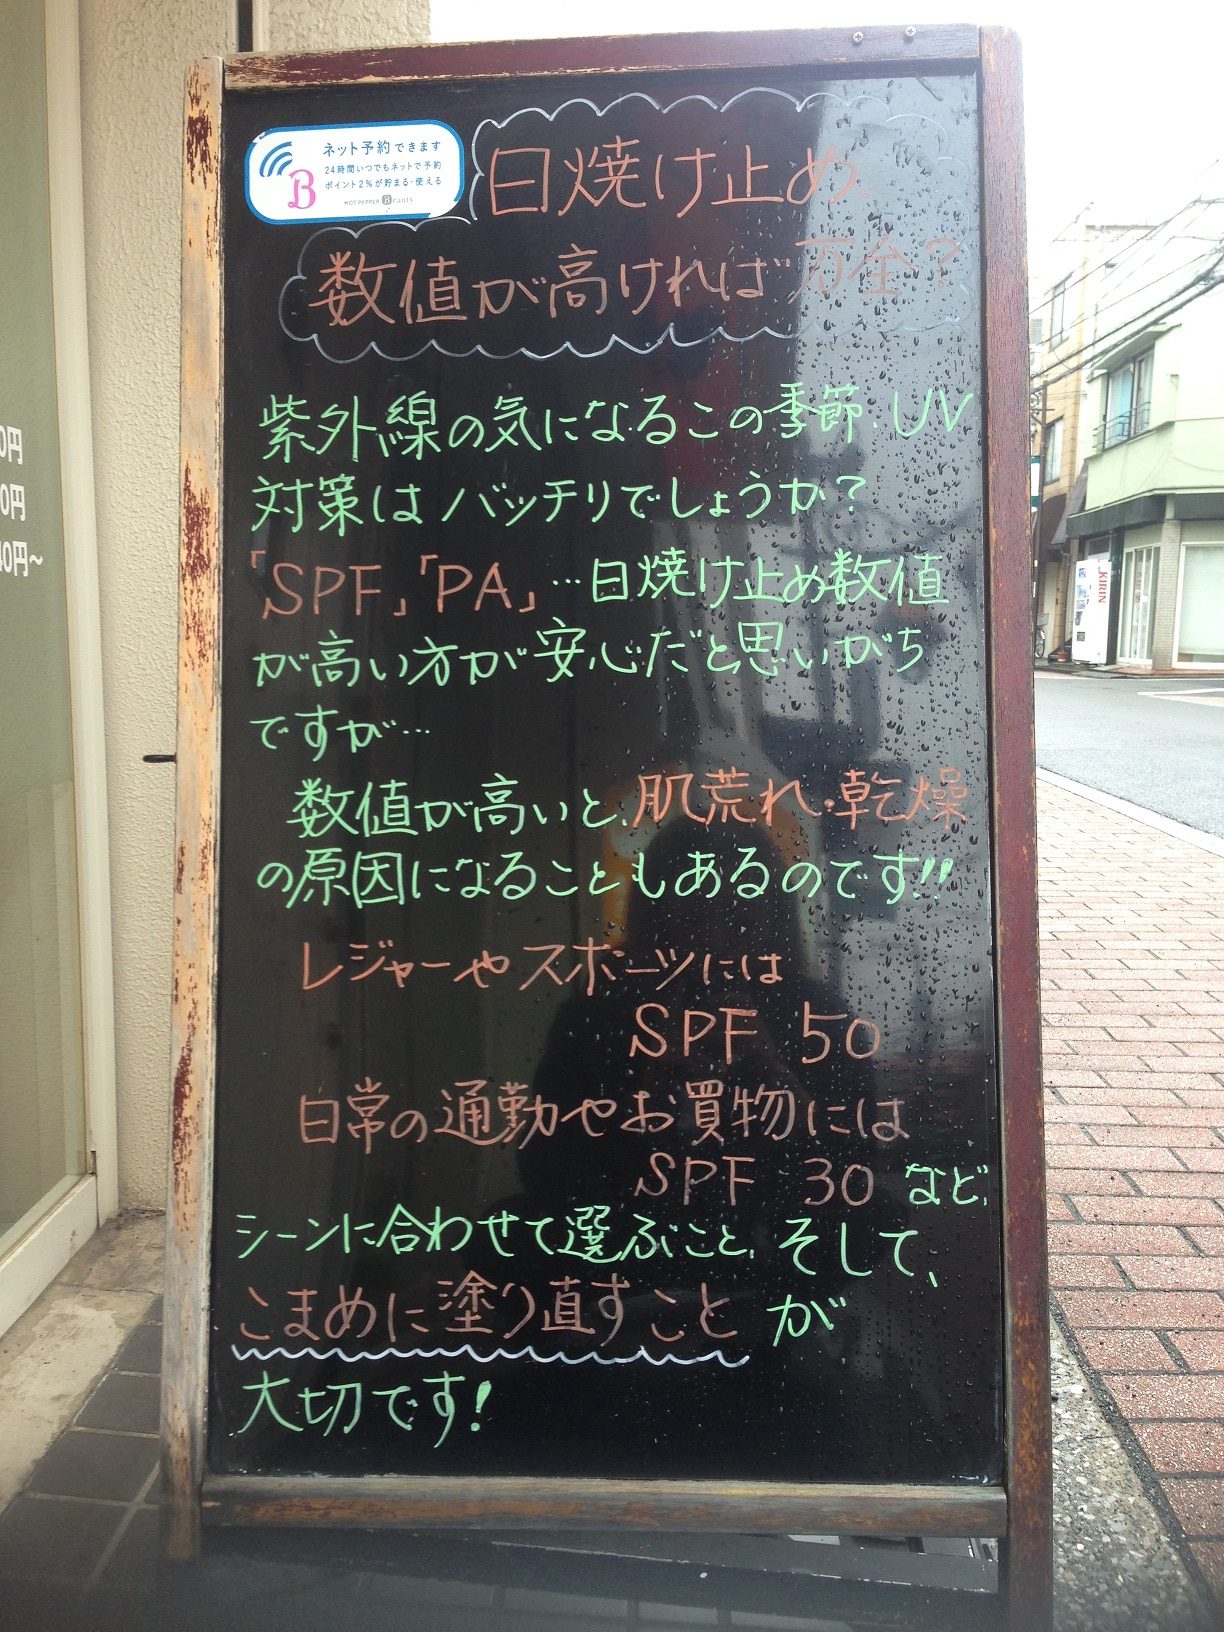 ネット予約できます
24時間いつでもネットで予約
ポイント2%が貯まる・使える
HOT PEPPER Beauty
B
日焼け止め、
数値が高ければ万全?
紫外線の気になるこの季節、UV
対策はバッチリでしょうか?
「SPF」「PA」…日焼け止め数値
が高い方が安心だと思いがち
ですが…
数値が高いと、肌荒れ・乾燥
の原因になることもあるのです!!
レジャーやスポーツには
SPF 50
日常の通勤やお買物には
SPF 30 など、
シーンに合わせて選ぶこと、そして、
こまめに塗り直すこと が
大切です!
0円
0円
40円~
KIRIN